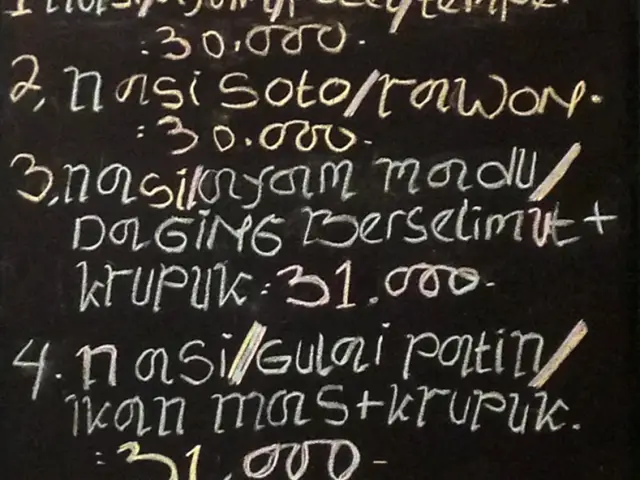 : 30.000.-
2. nasi soto/rawon.
: 30.000.-
3. nasi/ayam madu/
DAGING Berselimut +
krupuk : 31.000.-
4. nasi/Gulai patin/
ikan mas + krupuk.
: 31.000 -